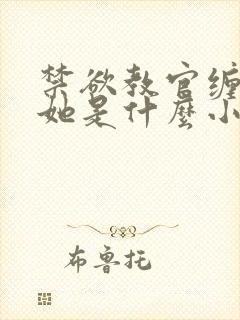 禁欲教官缠
她是什麼小
布鲁托